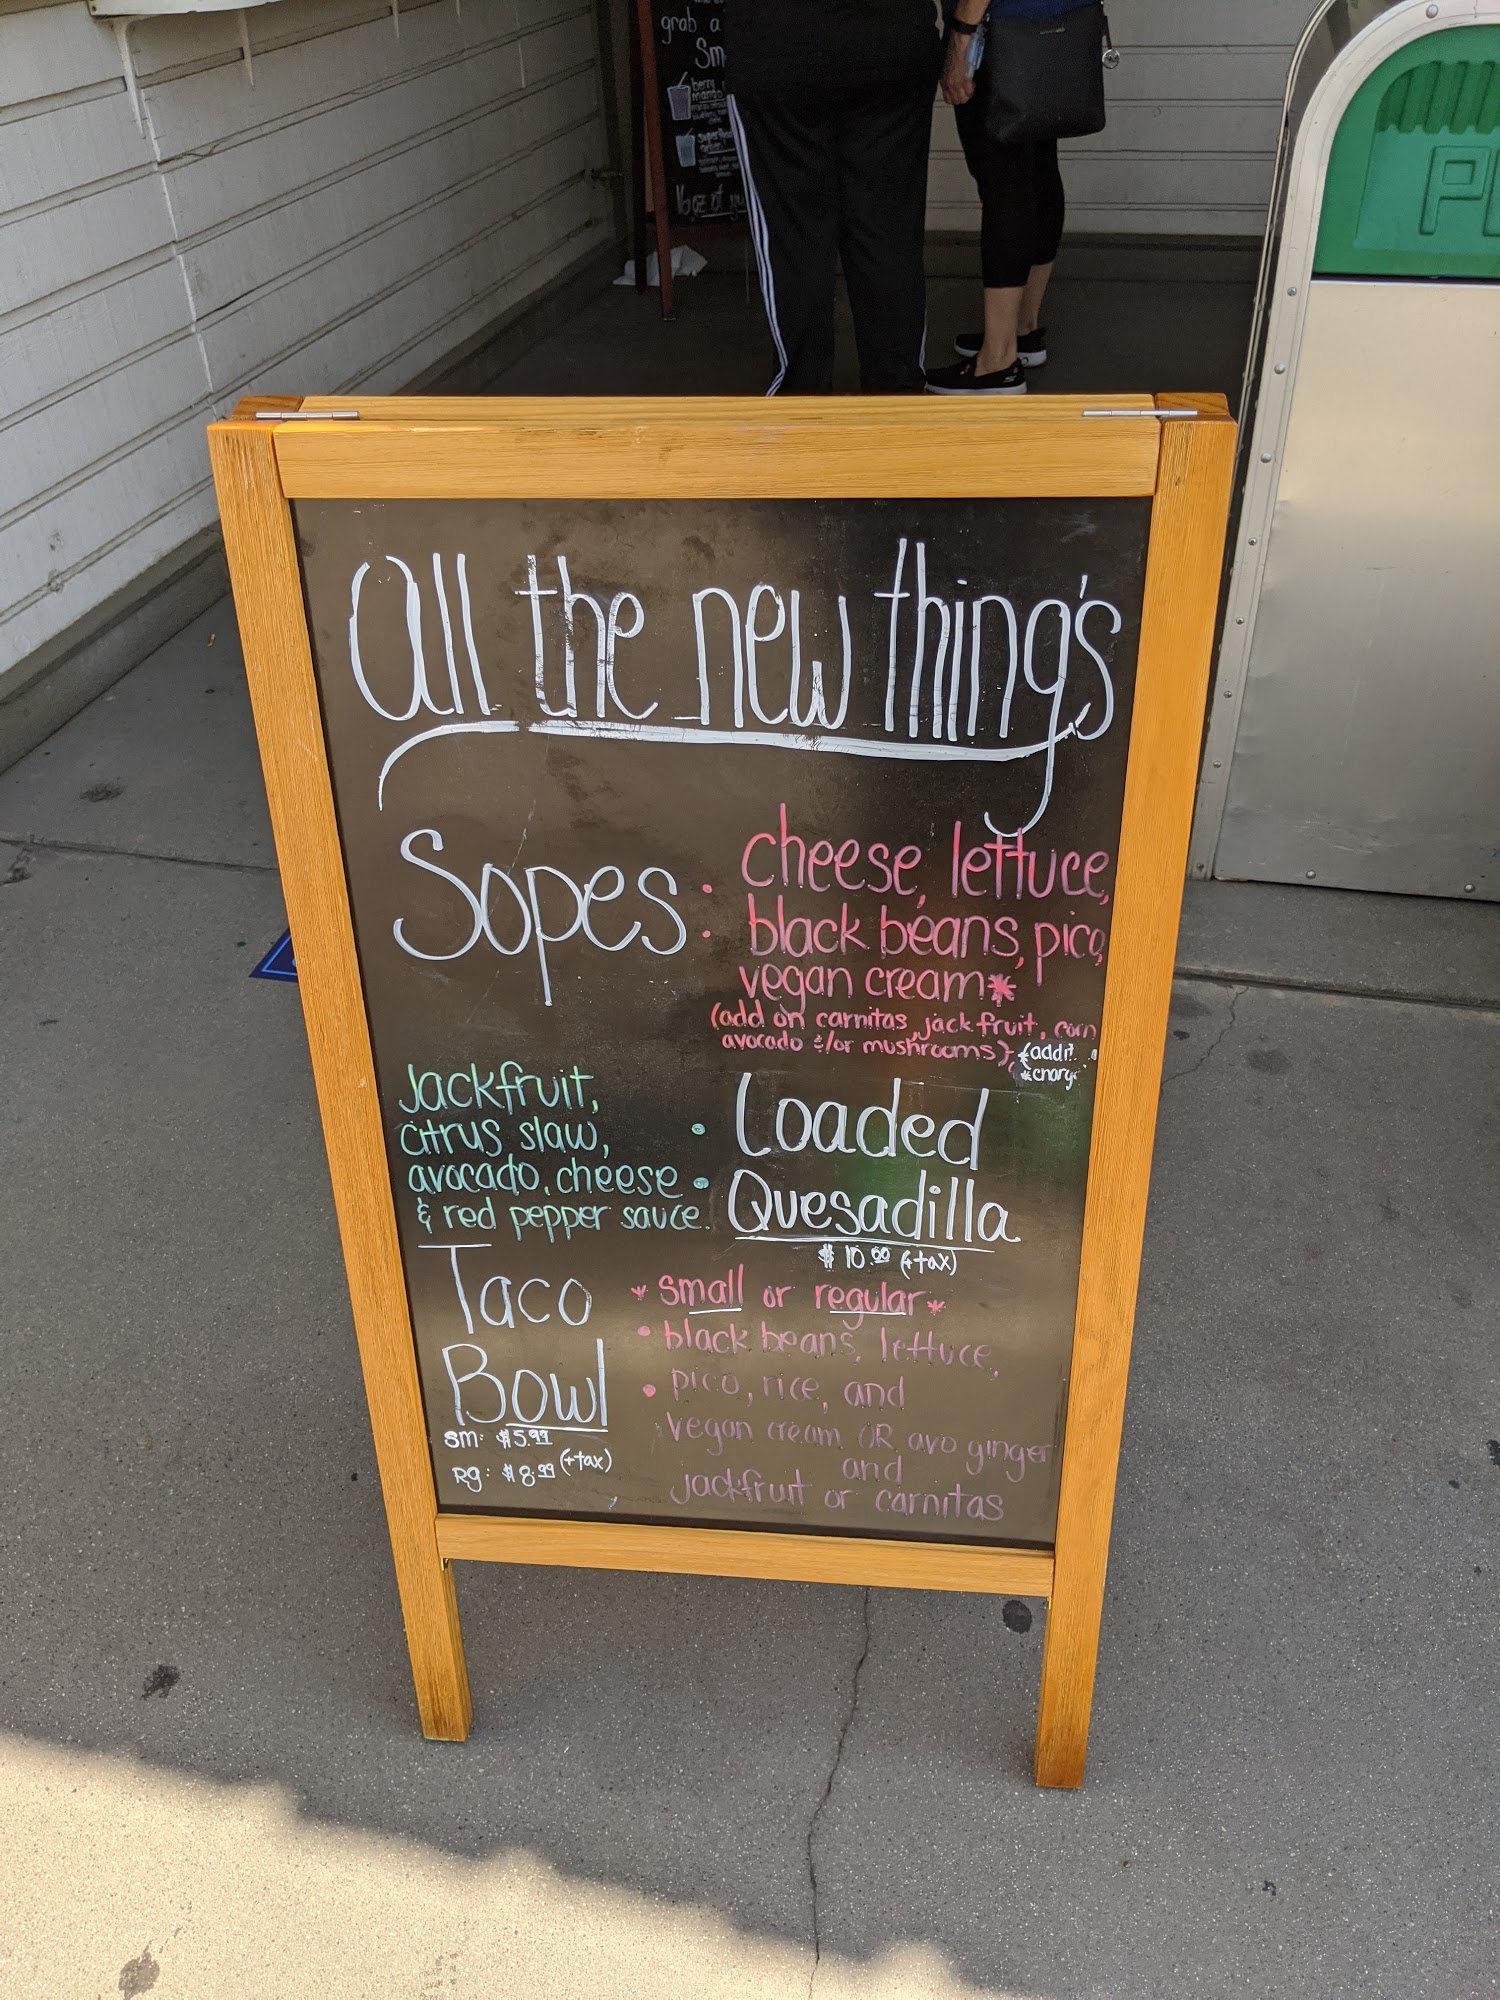 grab a
Sm
berry
16 oz of
All the new thing's
Sopes:
cheese, lettuce,
black beans, pico,
vegan cream*
(add on carnitas, jackfruit, corn
avocado &/or mushrooms)
Jackfruit,
citrus slaw,
avocado, cheese
& red pepper sauce.
: Loaded
Quesadilla
$10.00 (+tax)
Taco
Bowl
sm: $5.99
Rg: $8.99 (+tax)
* small or regular *
: black beans, lettuce,
pico, rice, and
vegan cream OR avo ginger
and
jackfruit or carnitas